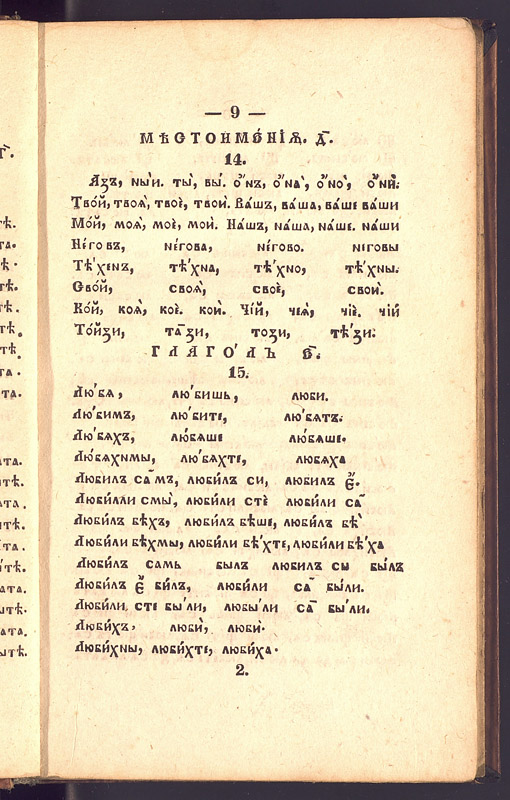 — 9 —
МѢСТОИМЕ́НІѦ. Д҃.
14.
Язъ, ны́и. ты̀, вы́. о҆́нъ, о҆́на̀, о҆́но̀, о҆́нѝ.
Тво́й, твоя̀, твоѐ, твоѝ. Ва́шъ, ва́ша, ва́ше ва́ши
Мо́й, моя̀, моѐ, моѝ. На́шъ, на́ша, на́ше. на́ши
Не́говъ, не́гова, не́гово. не́говы
Тѣ́хенъ, тѣ́хна, тѣ́хно, тѣ́хны.
Сво́й, своя̀, своѐ, своѝ.
Ко́й, коя̀, коѐ. коѝ. Чі́й, чія̀, чіѐ. чїй
То́йзи, та́зи, този, тѣ́зи.
ГЛАГО́ЛЪ Е҃.
15.
Лю́бя, лю́бишь, люби.
Лю́бимъ, лю́бите, лю́бятъ.
Лю́бяхъ, лю́бяше лю́бяше.
Лю́бяхмы, лю́бяхте, любяха
Любилъ са́мъ, люби́лъ си, любилъ Е҆́.
Люби́ли смы̀, люби́ли стѐ люби́ли са́
Люби́лъ бѣхъ, люби́лъ бѣше, люби́лъ бѣ̀
Люби́ли бѣхмы, люби́ли бѣ́хте, люби́ли бѣ́ха
Любилъ самь былъ любилъ сы былъ
Люби́лъ Е҆́ би́лъ, люби́ли са́ бы́ли.
Люби́ли сте бы́ли, любы́ли са́ бы́ли.
Люби́хъ. любѝ, любѝ.
Люби́хны, люби́хте, люби́ха.
2.
г҃.
тѣ.
та.
ѣ.
тѣ.
тѣ.
тѣ.
тѣ
та.
та.
ата.
тѣ.
ата.
ытѣ.
та.
тѣ.
ата.
ытѣ.
ата.
ытѣ.